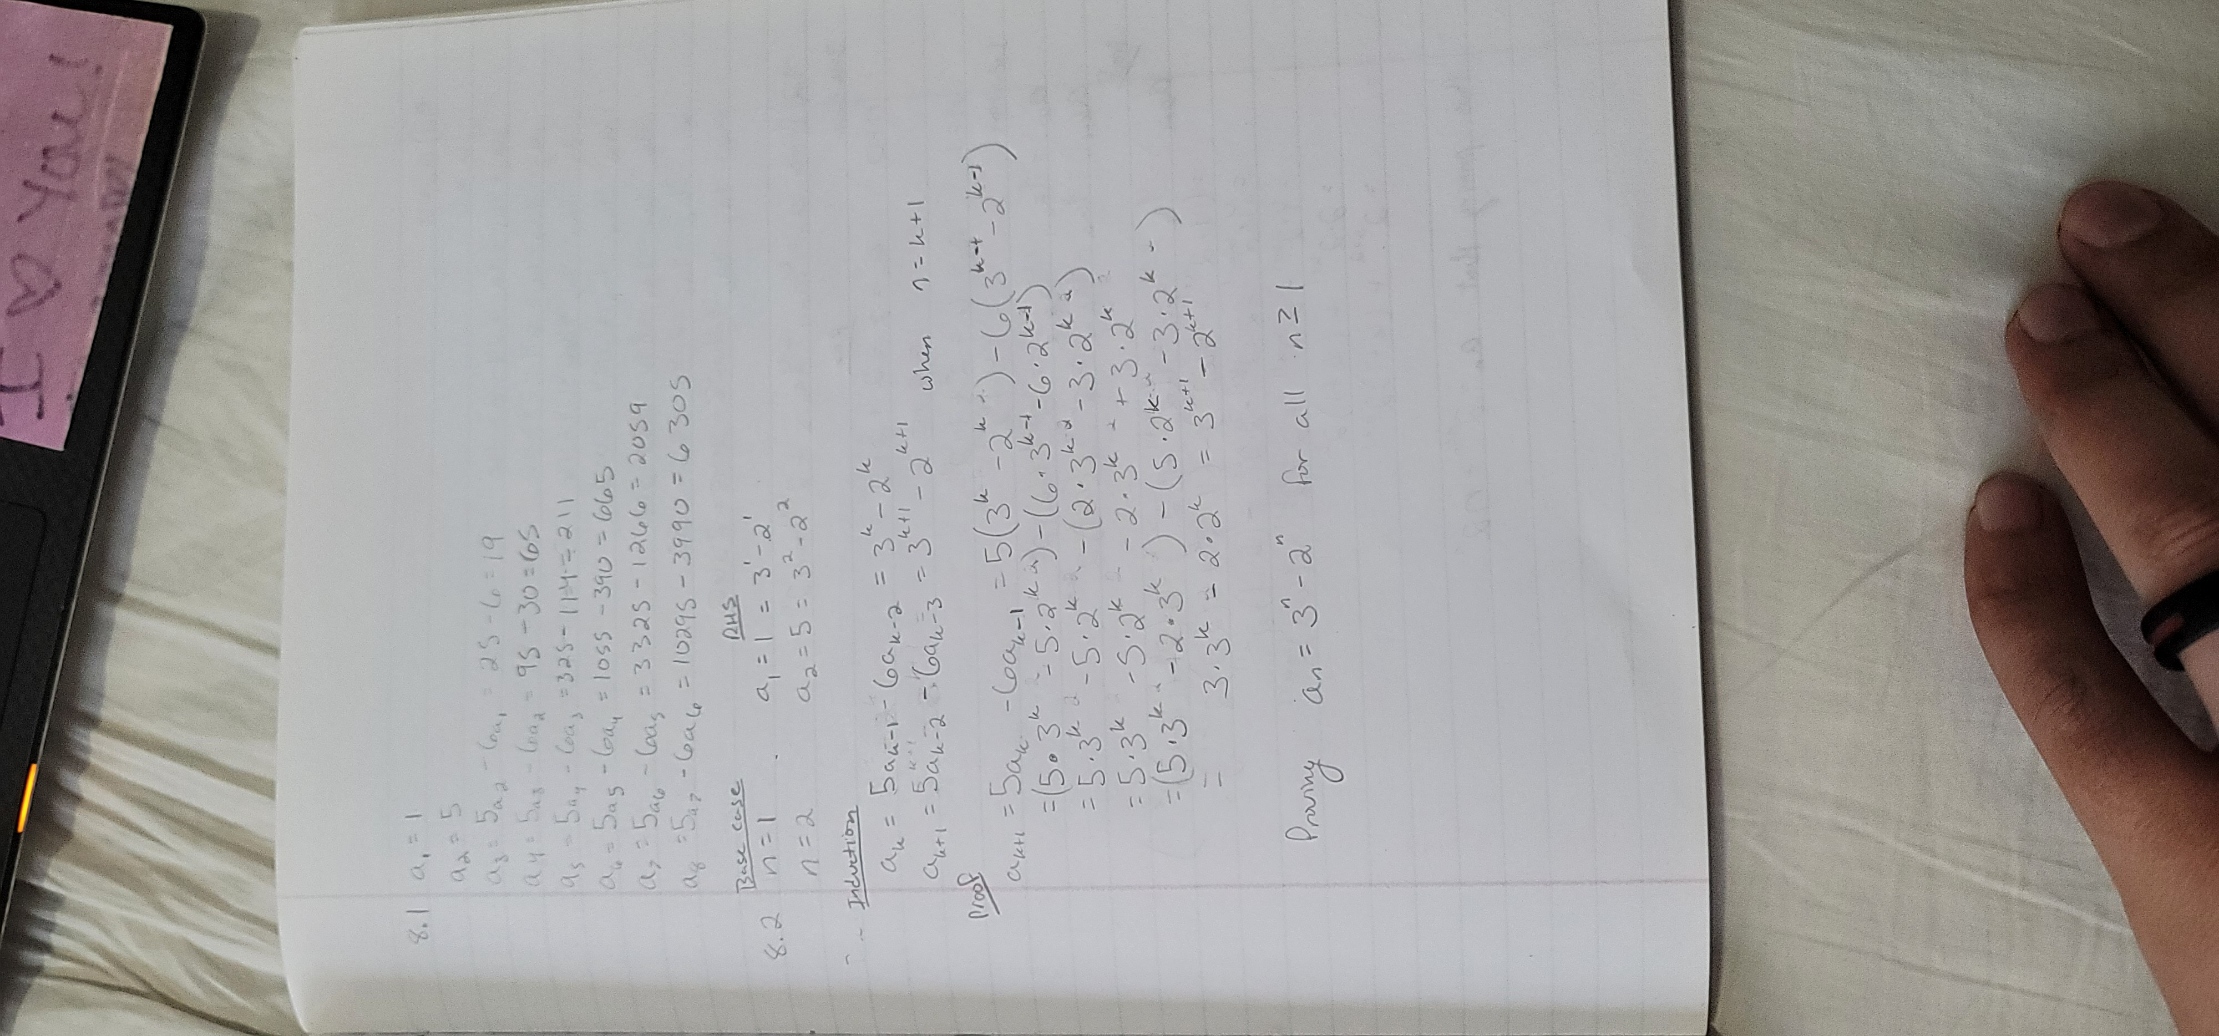 I ♡ You!
8.1 a₁ = 1
a₂ = 5
a₃ = 5a₂ - 6a₁ = 25 - 6 = 19
a₄ = 5a₃ - 6a₂ = 95 - 30 = 65
a₅ = 5a₄ - 6a₃ = 325 - 114 = 211
a₆ = 5a₅ - 6a₄ = 1055 - 390 = 665
a₇ = 5a₆ - 6a₅ = 3325 - 1266 = 2059
a₈ = 5a₇ - 6a₆ = 10295 - 3990 = 6305
Base case RHS
8.2 n = 1 a₁ = 1 = 3¹ - 2¹
n = 2 a₂ = 5 = 3² - 2²
Induction
aₖ = 5aₖ₋₁ - 6aₖ₋₂ = 3ᵏ - 2ᵏ
aₖ₊₁ = 5aₖ₋₂ - 6aₖ₋₃ = 3ᵏ⁺¹ - 2ᵏ⁺¹ when n = k+1
Proof
aₖ₊₁ = 5aₖ - 6aₖ₋₁ = 5(3ᵏ - 2ᵏ) - 6(3ᵏ⁻¹ - 2ᵏ⁻¹)
= (5·3ᵏ - 5·2ᵏ) - (6·3ᵏ⁻¹ - 6·2ᵏ⁻¹)
= 5·3ᵏ - 5·2ᵏ - (2·3ᵏ - 3·2ᵏ)
= 5·3ᵏ - 5·2ᵏ - 2·3ᵏ + 3·2ᵏ
= (5·3ᵏ - 2·3ᵏ) - (5·2ᵏ - 3·2ᵏ)
= 3·3ᵏ - 2·2ᵏ = 3ᵏ⁺¹ - 2ᵏ⁺¹
Proving aₙ = 3ⁿ - 2ⁿ for all n ≥ 1